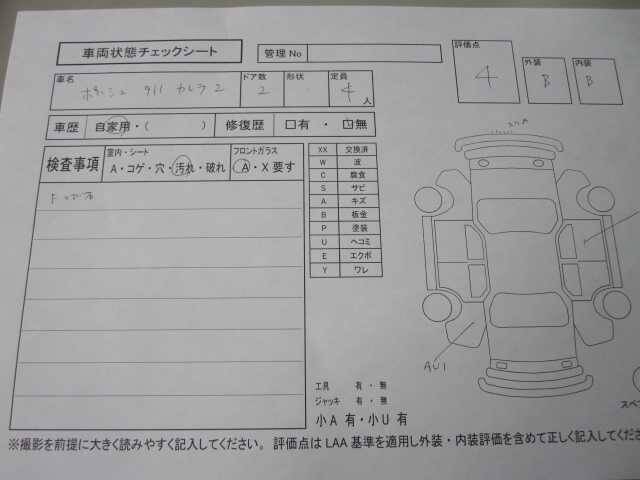 車両状態チェックシート
管理 No
評価点
4
外装
B
内装
B
車名
ポルシェ 911 カレラ 2
ドア数
2
形状
定員
4
人
車歴
自家用・( )
修復歴
□有 ・ □無
検査事項
室内・シート
A・コゲ・穴・汚れ・破れ
フロントガラス
A・X 要す
XX 交換済
W 波
C 腐食
S サビ
A キズ
B 板金
P 塗装
U ヘコミ
E エクボ
Y ワレ
AU1
工具 有 ・ 無
ジャッキ 有 ・ 無
小A 有・小U 有
スペ
※撮影を前提に大きく読みやすく記入してください。評価点は LAA 基準を適用し外装・内装評価を含めて正しく記入してくださ